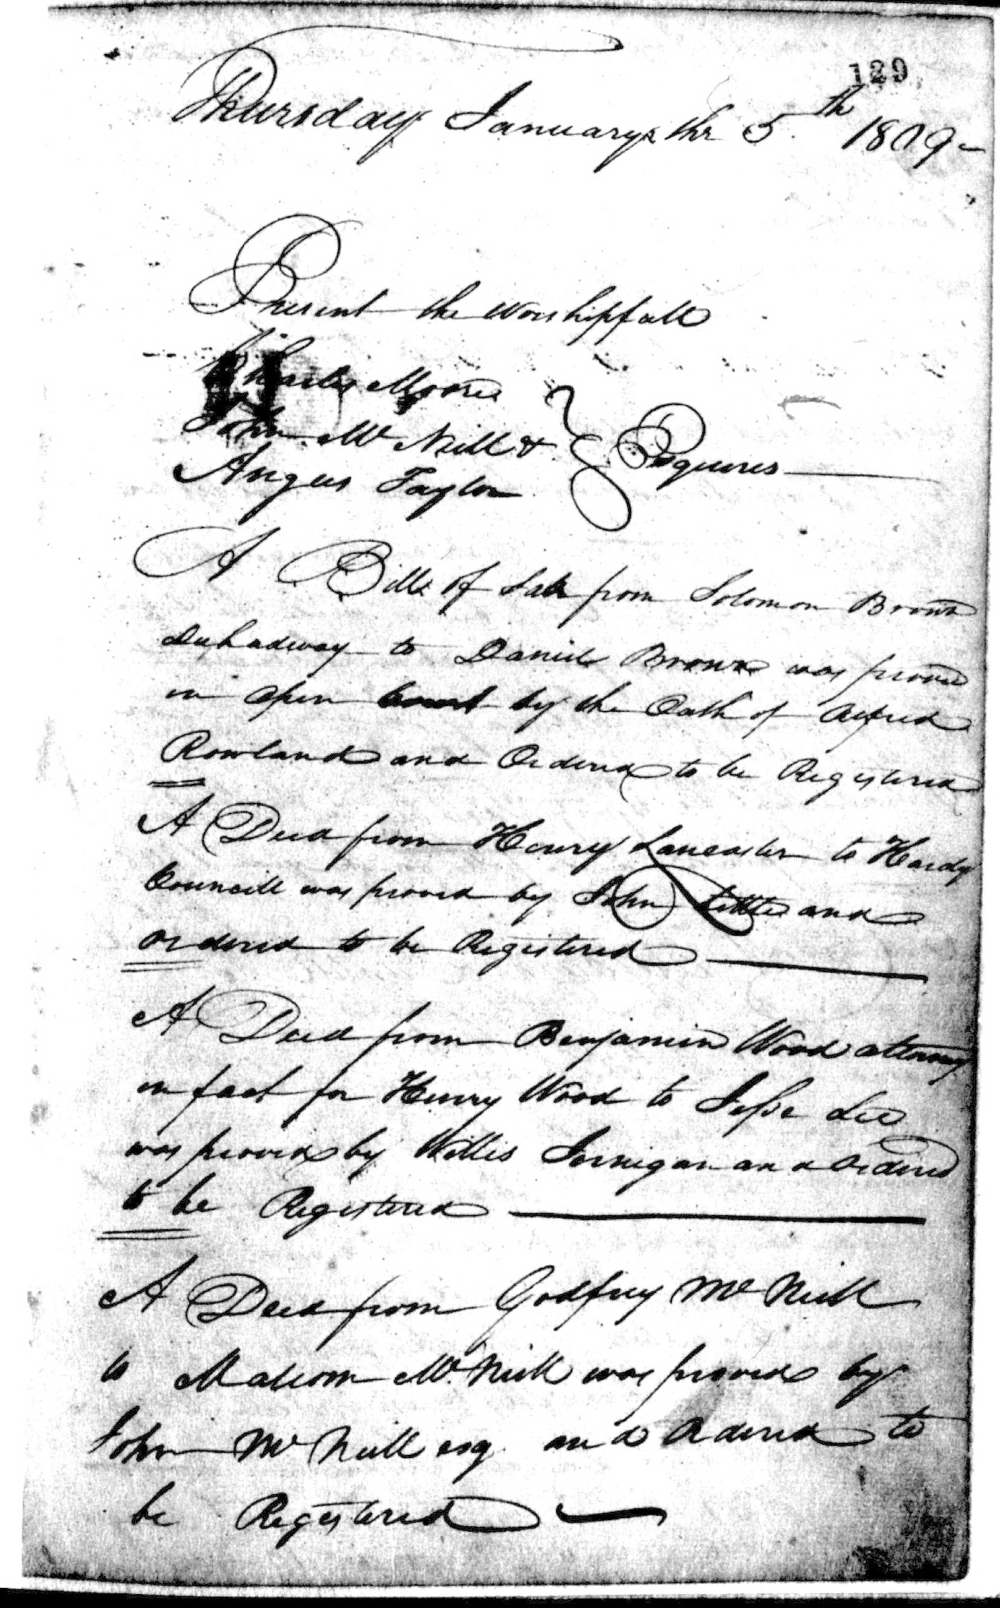 129
Thursday January the 5th 1809
Present the worshipfull
Charles Moore
John Mc Neill &
Esquires
Angus Taylor
A Bill of Sale from Solomon Brown
to Daniel Brown was proved
in open Court by the Oath of Alfred
Rowland and Ordered to be Registered
A Deed from Henry Lancaster to Hardy
Councill was proved by John Little and
ordered to be Registered
A Deed from Benjamin Wood attorney
in fact for Henry Wood to Jesse Lee
was proved by Willis Jernigan and Ordered
to be Registered
A Deed from Godfrey Mc Neill
to Malcom Mc Neill was proved by
John Mc Neill esq and Ordered to
be Registered